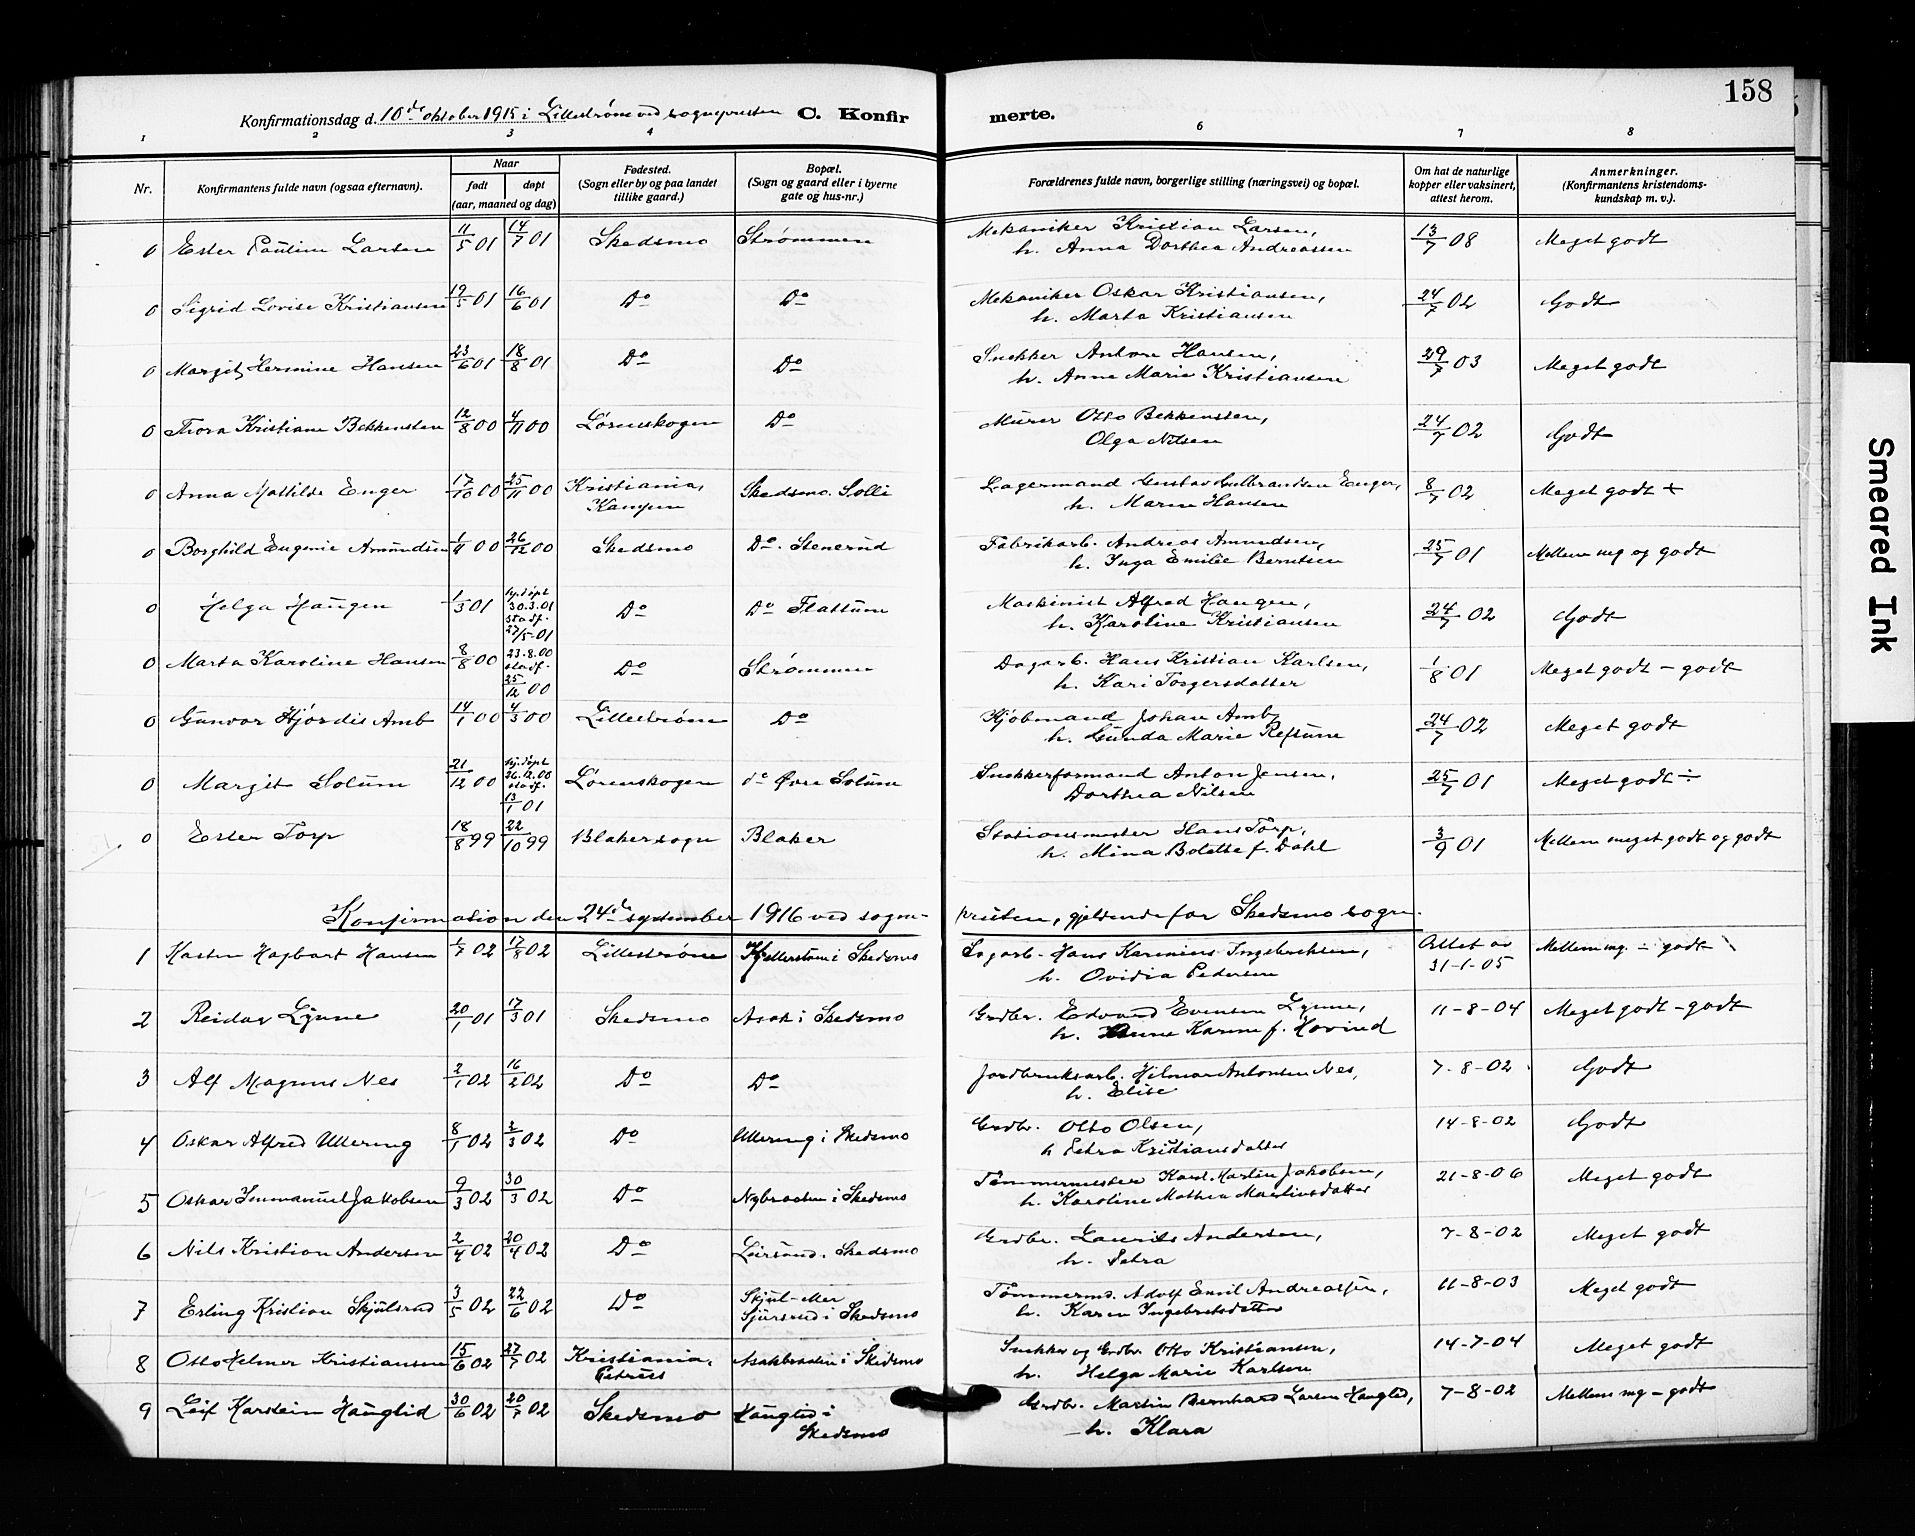 158
Konfirmationsdag d. 10de oktober 1915 i Lillestrøm ved sognepresten C. Konfirmerte.
1 2 3 4 6 7 8
Nr. Konfirmantens fulde navn (ogsaa efternavn). Naar født døpt (aar, maaned og dag) Fødested. (Sogn eller by og paa landet tillike gaard.) Bopæl. (Sogn og gaard eller i byerne gate og hus-nr.) Forældrenes fulde navn, borgerlige stilling (næringsvei) og bopæl. Om hat de naturlige kopper eller vaksinert, attest herom. Anmerkninger. (Konfirmantens kristendomskundskap m. v.).
0 Ester Pauline Larsen 11/5 01 14/7 01 Skedsmo Strømmen Mekaniker Kristian Larsen, h. Anna Dorthea Andreassen 13/7 08 Meget godt
0 Sigrid Lovise Kristiansen 19/5 01 16/6 01 Do Do Mekaniker Oskar Kristiansen, h. Marta Kristiansen 24/7 02 Godt
0 Margit Hermine Hansen 23/6 01 18/8 01 Do Do Snekker Anton Hansen, h. Anne Marie Kristiansen 29/7 03 Meget godt
0 Thora Kristiane Bekkensten 12/8 00 4/11 00 Lørenskogen Do Murer Otto Bekkensten, Olga Nilsen 24/7 02 Godt
0 Anna Mathilde Enger 17/10 00 25/11 00 Kristiania, Kampen Skedsmo. Solli Lagermand Gustav Gulbrandsen Enger, h. Maren Hansen 8/7 02 Meget godt +
0 Borghild Eugenie Amundsen 1/11 00 26/12 00 Skedsmo Do. Stenerud Fabrikarb. Andreas Amundsen, h. Inga Emilie Berntsen 25/7 01 Mellem mg og godt
0 Helga Haugen 1/3 01 hj.døpt 30.3.01 stadf. 27/5-01 Do Do Flattum Maskinist Alfred Haugen, h. Karoline Kristiansen 24/7 02 Godt
0 Marta Karoline Hansen 8/8 00 23.8.00 stadf. 25/12 00 Do Strømmen Dagarb. Hans Kristian Karlsen, h. Kari Torgersdatter 1/8 01 Meget godt - godt
0 Gunvor Hjørdis Amb 14/1 00 4/3 00 Lillestrøm Do Kjøbmand Johan Amb, h. Gunda Marie Refsum 24/7 02 Meget godt
0 Margit Solum 21/12 00 hj.døpt 26.12.00 stadf. 13/1 01 Lørenskogen do Øvre Solum Snekkerformand Anton Jensen, Dorthea Nilsen 25/7 01 Meget godt ÷
0 Ester Torp 18/8 99 22/10 99 Blaker sogn Blaker Stationsmester Hans Torp, h. Mina Bolette f. Dahl 3/9 01 Mellem meget godt og godt
Konfirmation den 24de september 1916 ved sognepresten, gjeldende for Skedsmo sogn.
1 Karsten Hagbart Hansen 1/7 02 17/8 02 Lillestrøm Kjellerstøm i Skedsmo Sagarb. Hans Karenius Ingebrethsen, h. Ovidia Pedersen Attest av 31-1-05 Mellem mg. - godt
2 Reidar Lynne 20/1 01 17/3 01 Skedsmo Asak i Skedsmo Grdbr. Edvard Evensen Lynne, h. Anne Karine f. Hovind 11-8-04 Meget godt - godt
3 Alf Magnus Nes 2/1 02 16/2 02 Do Do Jordbruksarb. Hilmar Antonsen Nes, h. Elise 7-8-02 Godt
4 Oskar Alfred Ullering 8/1 02 2/3 02 Do Ullering i Skedsmo Grdbr. Otto Olsen, h Petra Kristiansdatter 14-8-02 Godt
5 Oskar Immanuel Jakobsen 9/3 02 30/3 02 Do Nybraaten i Skedsmo Tømmermester Karl Martin Jakobsen, h. Karoline Mathea Martinsdatter 21-8-06 Meget godt
6 Nils Kristian Andersen 2/4 02 20/4 02 Do Leirsund. Skedsmo Grdbr. Laurits Andersen, h. Petra 7-8-02 Meget godt
7 Erling Kristian Skjulsrud 3/5 02 22/6 02 Do Skjul- eller Sjursrud i Skedsmo Tømmerm. Adolf Emil Andreassen, h. Karen Ingebretsdatter 11-8-03 Meget godt
8 Otto Helmer Kristiansen 15/6 02 27/7 02 Kristiania, Petrus Asakbraaten i Skedsmo Snekker og Grdbr. Otto Kristiansen, h. Helga Marie Karlsen 14-7-04 Meget godt
9 Leif Karstein Hauglid 30/6 02 20/7 02 Skedsmo Hauglid i Skedsmo Grdbr. Martin Bernhard Larsen Hauglid, h. Klara 7-8-02 Mellem mg - godt
Smeared Ink